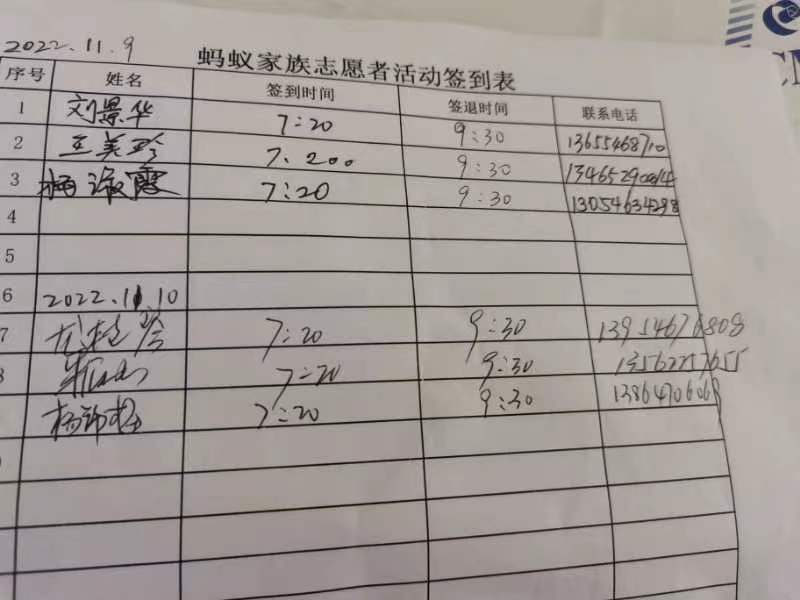 2022.11.9
蚂蚁家族志愿者活动签到表
序号 姓名 签到时间 签退时间 联系电话
1 刘景华 7:20 9:30 13655468710
2 王美玲 7.200 9:30
3 杨淑霞 7:20 9:30 13054634298
4
5
6 2022.11.10
7 7:20 9:30 13954676808
8 7:20 9:30 13562257655
7:20 9:30